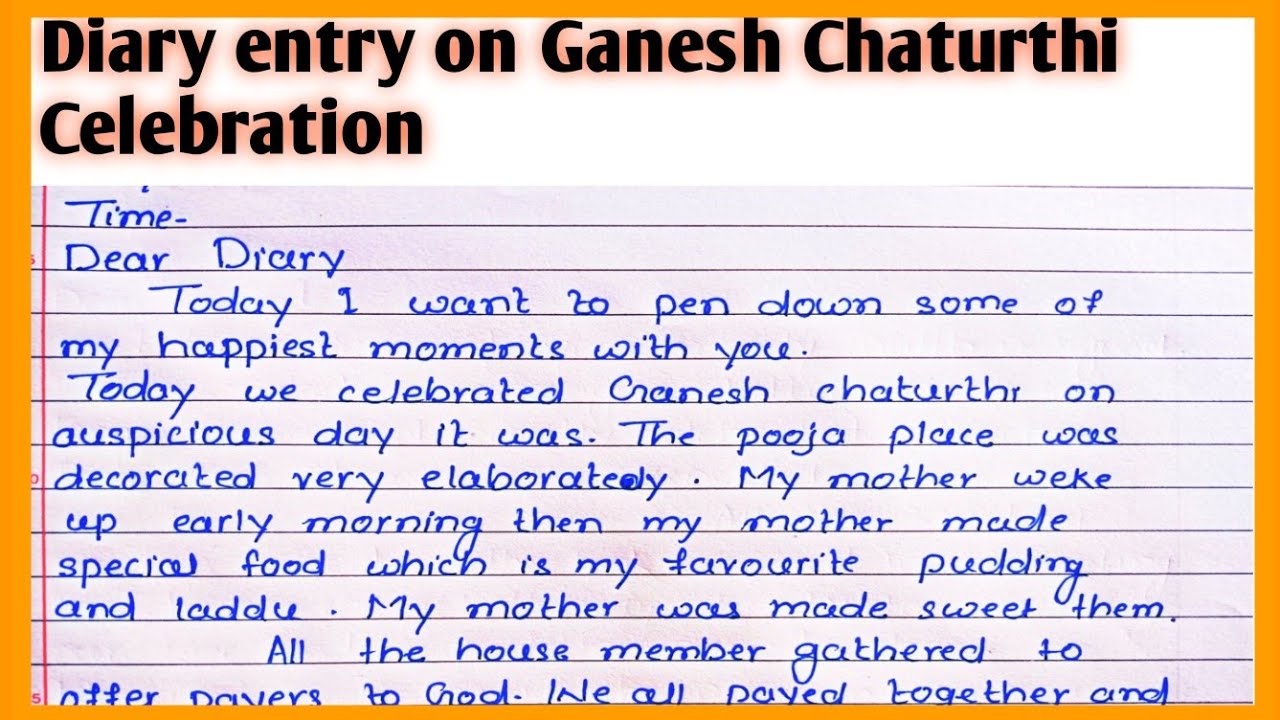 Diary entry on Ganesh Chaturthi
Celebration
Time-
Dear Diary
Today I want to pen down some of
my happiest moments with you.
Today we celebrated Ganesh chaturthi on
auspicious day it was. The pooja place was
decorated very elaborately. My mother weke
up early morning then my mother made
special food which is my favourite pudding
and laddu. My mother was made sweet them.
All the house member gathered to
offer payers to God. We all payed together and